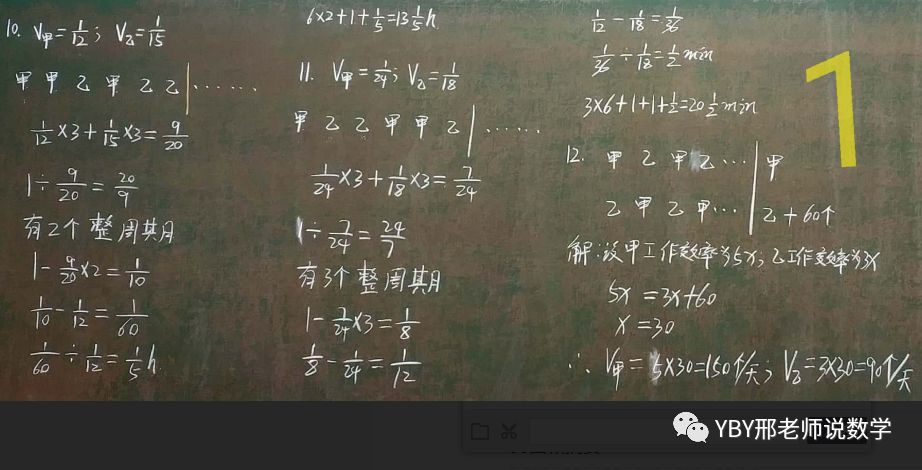 10. V甲=1/12; V乙=1/15
甲 甲 乙 甲 乙 乙 | ······
1/12×3+1/15×3=9/20
1÷9/20=20/9
有2个整周期月
1-9/20×2=1/10
1/10-1/12=1/60
1/60÷1/12=1/5h
6×2+1+1/5=13 1/5h
11. V甲=1/24; V乙=1/18
甲 乙 乙 甲 甲 乙 | ······
1/24×3+1/18×3=7/24
1÷7/24=24/7
有3个整周期
1-7/24×3=1/8
1/8-1/24=1/12
1/12-1/18=1/36
1/36÷1/18=1/2min
3×6+1+1+1/2=20 1/2min
12. 甲 乙 甲 乙··· | 甲
乙 甲 乙 甲··· | 乙+60个
解:设甲工作效率为5x; 乙工作效率为3x
5x=3x+60
x=30
∴V甲=5×30=150个/天; V乙=3×30=90个/天
1
YBY邢老师说数学